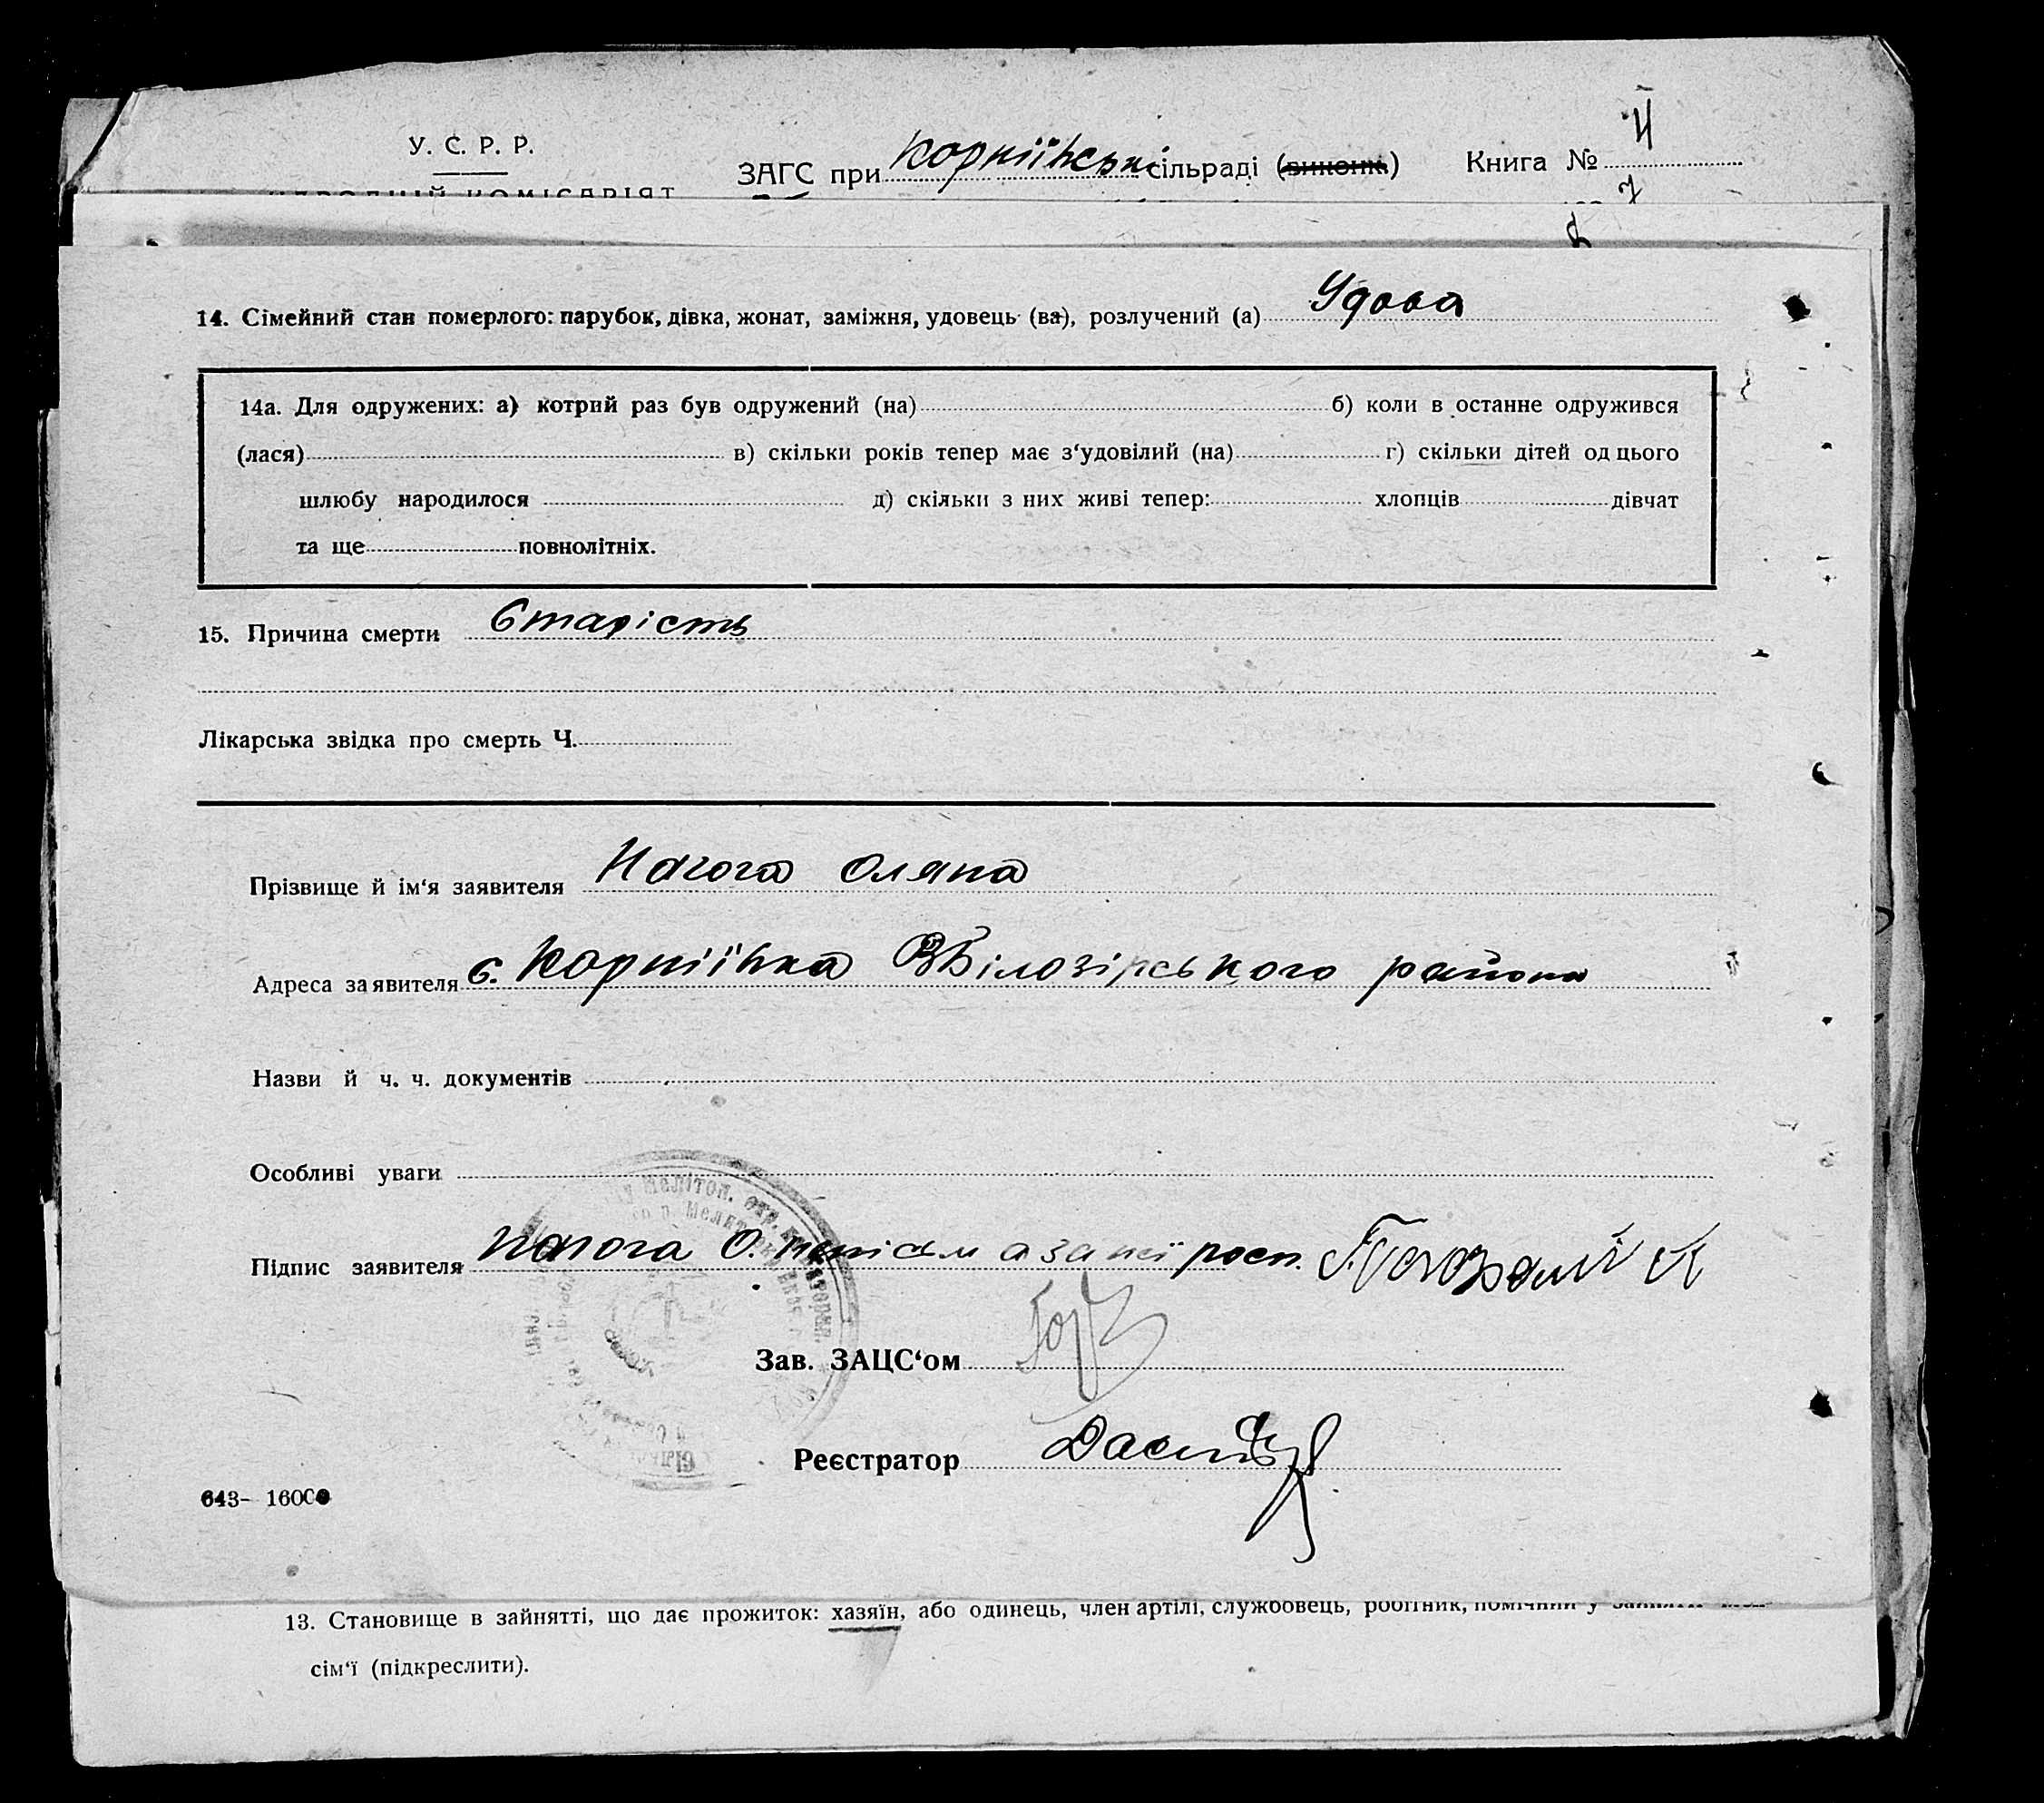 У. С. Р. Р.
ЗАГС при Корніївські сільраді (виконк.) Книга № II
НАРОДНІЙ КОМІСАРІЯТ
14. Сімейний стан померлого: парубок, дівка, жонат, заміжня, удовець (ва), розлучений (а) Удова
14а. Для одружених: а) котрий раз був одружений (на) б) коли в останне одружився
(лася) в) скільки років тепер має з‘удовілий (на) г) скільки дітей од цього
шлюбу народилося д) скільки з них живі тепер: хлопців дівчат
та ще повнолітніх.
15. Причина смерти Старість
Лікарська звідка про смерть Ч.
Прізвище й ім‘я заявителя Нагога Оляна
Адреса заявителя с. Корніївка ВБілозірського района
Назви й ч. ч. документів
Особливі уваги
Підпис заявителя Нагога О. непісьм а за неї росп.
Зав. ЗАЦС‘ом
Реєстратор
643- 16000
13. Становище в зайнятті, що дає прожиток: хазяїн, або одинець, член артілі, службовець, робітник, помічний у
сім‘ї (підкреслити).